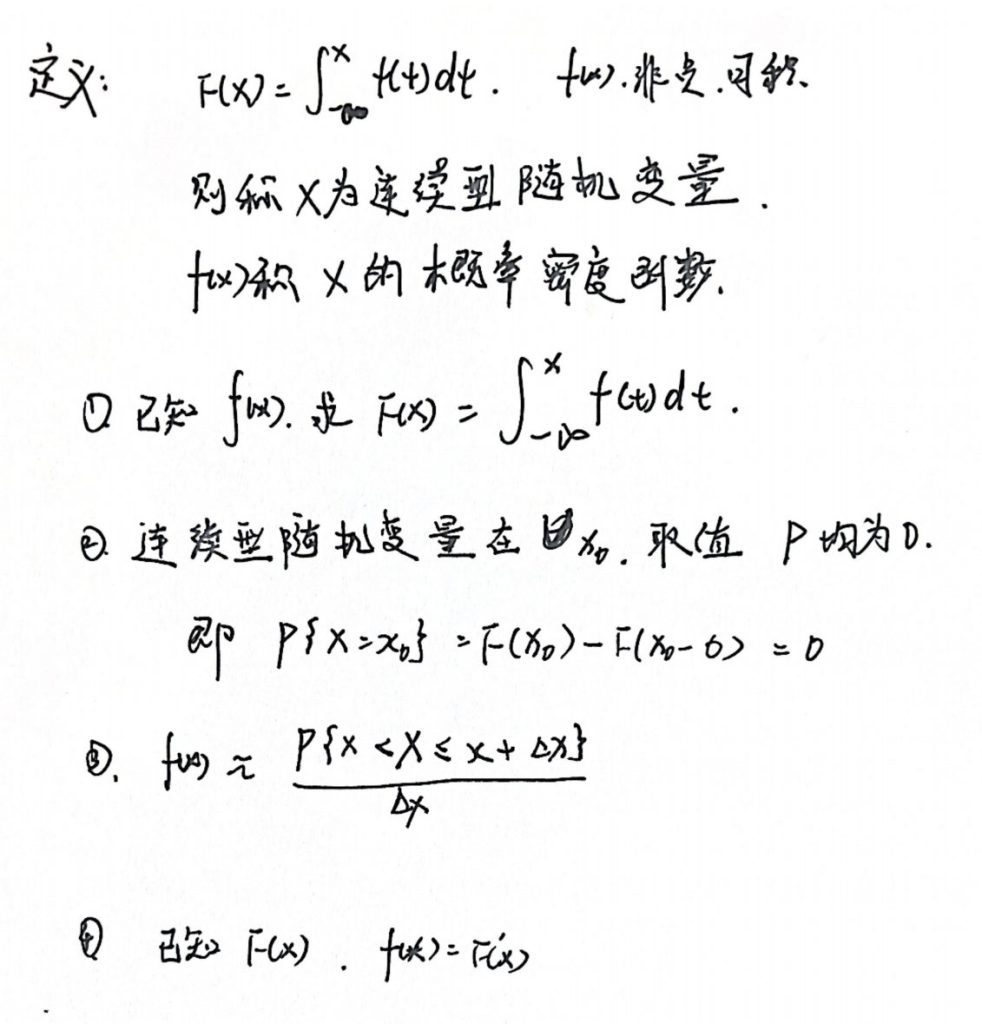 定义: F(x)=∫_{-∞}^{x} f(t)dt. f(x).非负.可积.
则称 X为连续型随机变量.
f(x)称 X 的概率密度函数.
① 已知 f(x). 求 F(x) = ∫_{-∞}^{x} f(t)dt.
② 连续型随机变量在 x₀. 取值 P 均为0.
即 P{X=x₀} = F(x₀)-F(x₀-0) = 0
③. f(x) ≈ P{x<X≤x+Δx}/Δx
④ 已知 F(x). f(x)=F'(x)